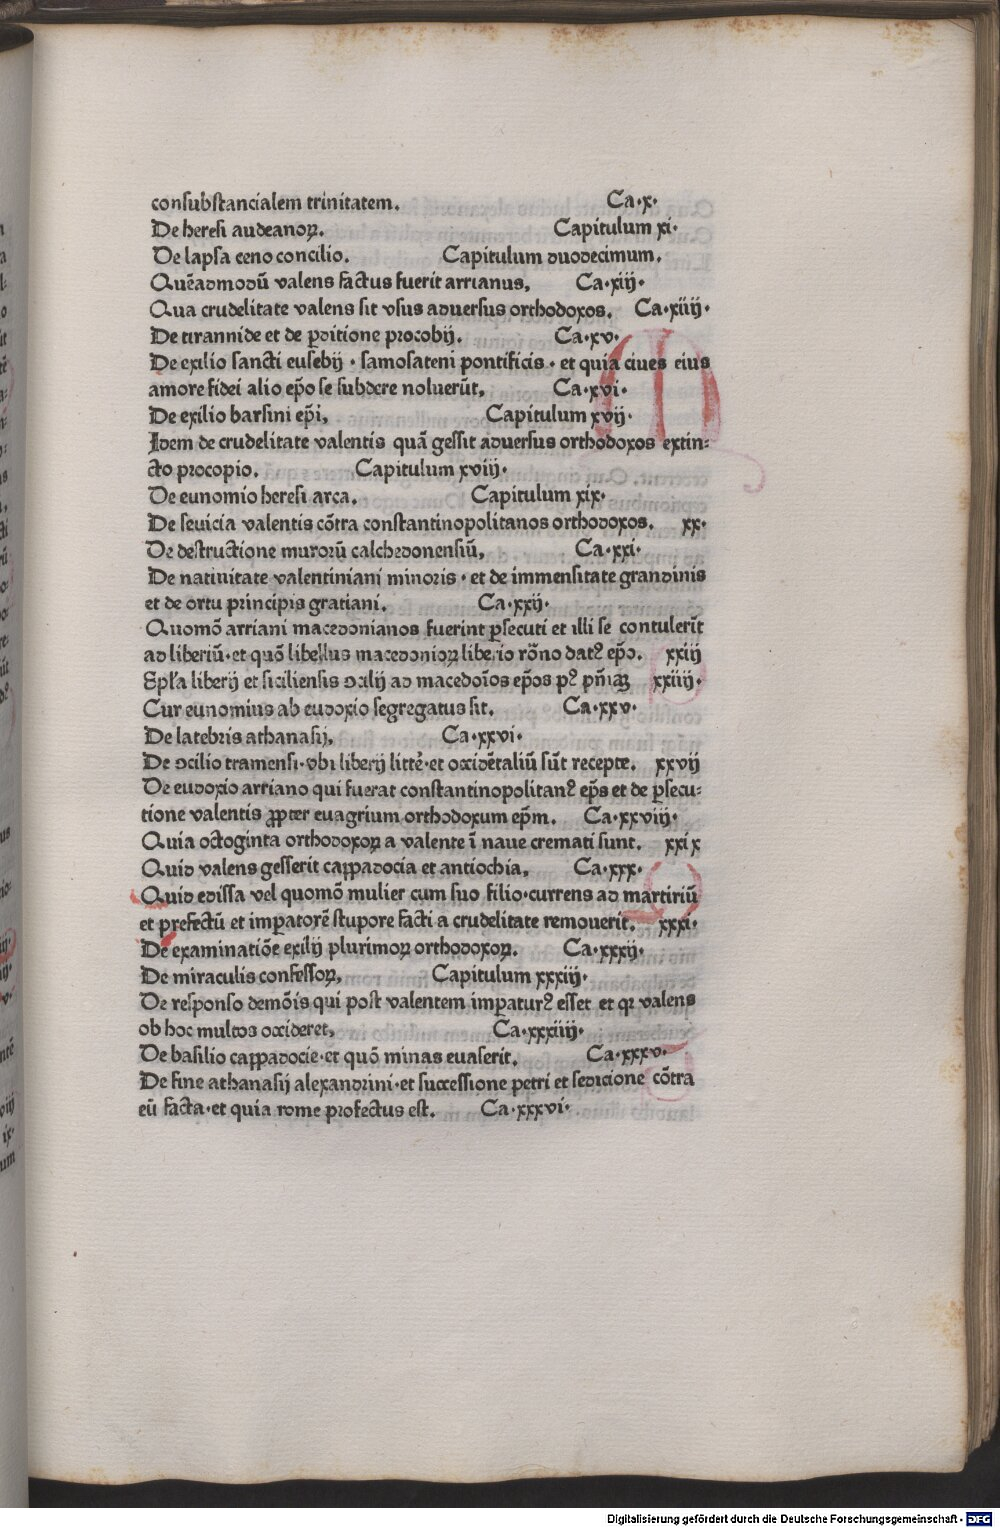 consubstancialem trinitatem. Ca·x·
De heresi audeanoꝝ. Capitulum xi·
De lapsa ceno concilio. Capitulum duodecimum.
Quēadmodū valens factus fuerit arrianus, Ca·xiij·
Qua crudelitate valens sit vsus aduersus orthodoxos. Ca·xiiij·
De tirannide et de ꝑditione procobij. Ca·xv·
De exilio sancti eusebij · samosateni pontificis · et quia ciues eius
amore fidei alio ep̄o se subdere noluerūt, Ca·xvi·
De exilio barsini ep̄i, Capitulum xvij·
Idem de crudelitate valentis quā gessit aduersus orthodoxos extin:
cto procopio. Capitulum xviij·
De eunomio heresi arca. Capitulum xix·
De seuicia valentis cōtra constantinopolitanos orthodoxos. xx·
De destructione murorū calchedonensiū, Ca·xxi·
De natiuitate valentiniani minoris · et de immensitate grandinis
et de ortu principis gratiani. Ca·xxij·
Quomō arriani macedonianos fuerint ꝑsecuti et illi se contulerūt
ad liberiū·et quō libellus macedonioꝝ liberio rōno datꝰ ep̄o. xxiij
Epl̄a liberij et siciliensis ɔcilij ad macedoīos ep̄os pꝰ xxiiij·
Cur eunomius ab eudoxio segregatus sit. Ca·xxv·
De latebris athanasij, Ca·xxvi·
De ɔcilio tramensi·vbi liberij litte᷑·et occidētaliū sūt recepte. xxvij
De eudoxio arriano qui fuerat constantinopolitanꝰ ep̄s et de ꝑsecu:
tione valentis ꝓpter euagrium orthodoxum ep̄m. Ca·xxviij·
Quia octoginta orthodoxoꝝ a valente ī naue cremati sunt. xxix
Quid valens gesserit cappadocia et antiochia, Ca·xxx·
Quid edissa vel quomō mulier cum suo filio·currens ad martiriū
et prefectū et imꝑatorē stupore facti a crudelitate remouerit. xxxi·
De examinatiōe exilij plurimoꝝ orthodoxoꝝ. Ca·xxxij·
De miraculis confessoꝝ, Capitulum xxxiij·
De responso demōis qui post valentem imꝑaturꝰ esset et ꝙ valens
ob hoc multos occideret, Ca·xxxiiij·
De basilio cappadocie·et quō minas euaserit. Ca·xxxv·
De fine athanasij alexandrini·et successione petri et sedicione cōtra
eū facta·et quia rome profectus est. Ca·xxxvi·
Digitalisierung gefördert durch die Deutsche Forschungsgemeinschaft - DFG